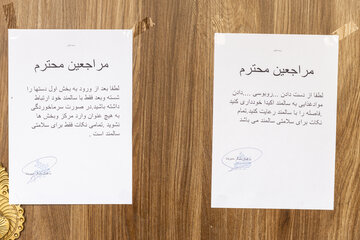 مراجعین محترم
لطفا بعد از ورود به بخش اول دستها را
شسته وبعد فقط با سالمند خود ارتباط
داشته باشید.در صورت سرماخوردگی
به هیچ عنوان وارد مرکز وبخش ها
نشوید .تمامی نکات فقط برای سلامتی
سالمند است .
مراجعین محترم
لطفا از دست دادن ...روبوسی ....دادن
موادغذایی به سالمند اکیدا خودداری کنید
.فاصله را با سالمند رعایت کنید.تمام
نکات برای سلامتی سالمند می باشد